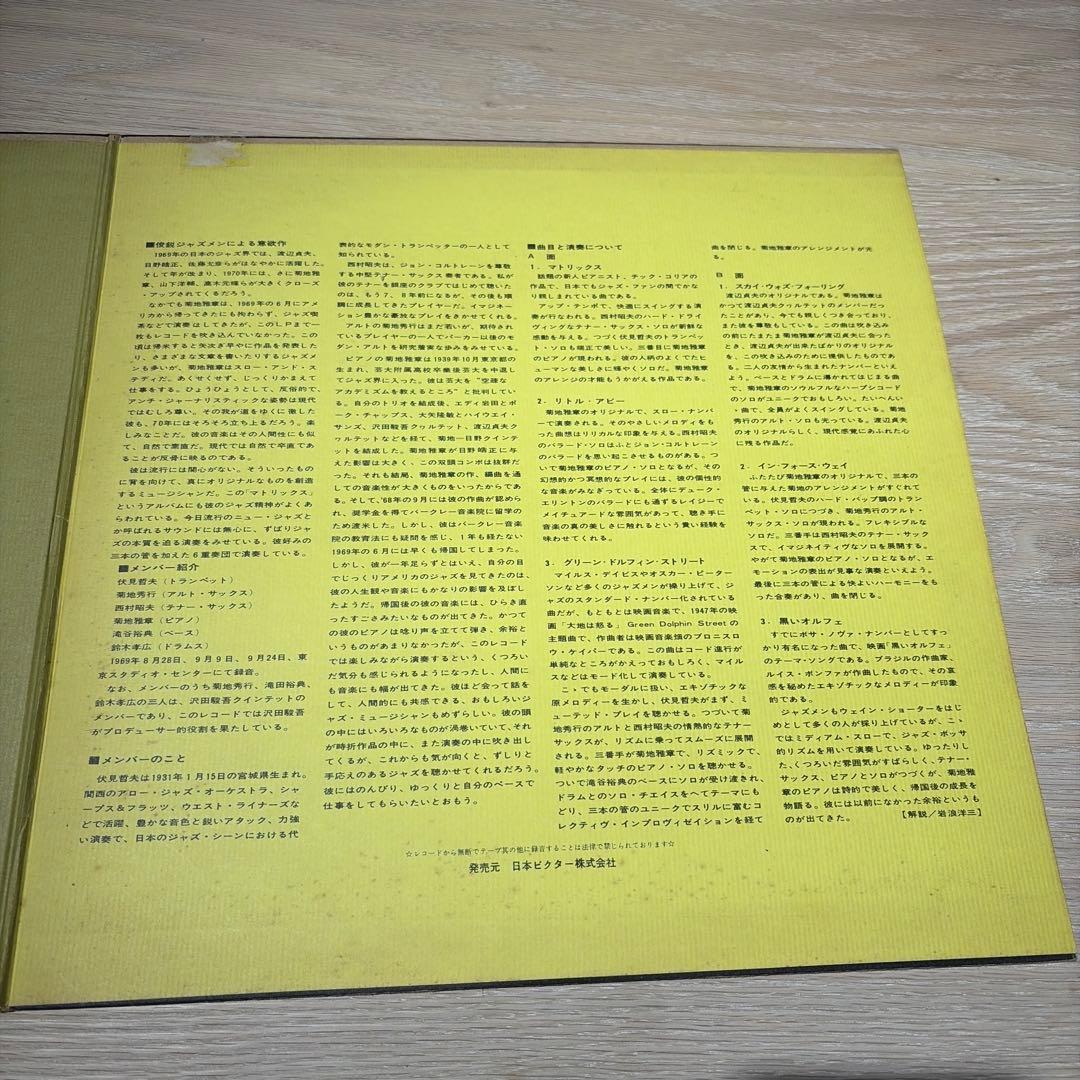 ■俊鋭ジャズメンによる意欲作
1969年の日本のジャズ界では、渡辺貞夫、
日野皓正、佐藤允彦らがはなやかに活躍した。
そして年が改まり、1970年には、さに菊地雅
章、山下洋輔、高木元輝らが大きくクローズ
・アップされてくるだろう。
なかでも菊地雅章は、1969年の6月にアメ
リカから帰ってきたにも拘わらず、ジャズ喫
茶などで演奏はしてきたが、このLPまで一
枚もレコードを吹き込んでいなかった。この
頃は帰米すると矢次ぎ早やに作品を発表した
り、さまざまな文章を書いたりするジャズメ
ンも多いが、菊地雅章はスロー・アンド・ス
テディだ。あくせくせず、じっくりかまえて
仕事をする。ひょうひょうとして、反俗的で、
アンチ・ジャーナリスティックな姿勢は現代
ではむしろ尊い。その我が道をゆくに徹した
彼も、70年にはそろそろ立ち上るだろう。楽
しみなことだ。彼の音楽はその人間性にも似
て、自然で素直だ。現代では自然で卒直であ
ることが反骨に映るのである。
彼は流行には関心がない。そういったもの
に背を向けて、真にオリジナルなものを創造
するミュージシャンだ。この「マトリックス」
というアルバムにも彼のジャズ精神がよくあ
らわれている。今日流行のニュー・ジャズと
か呼ばれるサウンドには無心に、ずばりジャ
ズの本質を迫る演奏をみせている。彼好みの
三本の管を加えた6重奏団で演奏している。
■メンバー紹介
伏見哲夫(トランペット)
菊地秀行(アルト・サックス)
西村昭夫(テナー・サックス)
菊地雅章(ピアノ)
滝谷裕典(ベース)
鈴木孝広(ドラムス)
1969年8月28日、9月9日、9月24日、東
京スタディオ・センターにて録音。
なお、メンバーのうち菊地秀行、滝田裕典、
鈴木孝広の三人は、沢田駿吾クインテットの
メンバーであり、このレコードでは沢田駿吾
がプロデューサー的役割を果たしている。
■メンバーのこと
伏見哲夫は1931年1月15日の宮城県生まれ。
関西のアロー・ジャズ・オーケストラ、シャ
ープス&フラッツ、ウエスト・ライナーズな
どで活躍、豊かな音色と鋭いアタック、力強
い演奏で、日本のジャズ・シーンにおける代
表的なモダン・トランペッターの一人として
知られている。
西村昭夫は、ジョン・コルトレーンを尊敬
する中堅テナー・サックス奏者である。私が
彼のテナーを銀座のクラブではじめて聴いた
のは、もう7、8年前になるが、その後も順
調に成長してきたプレイヤーだ。イマジネー
ション豊かな豪放なプレイをきかせてくれる。
アルトの菊地秀行はまだ若いが、期待され
ているプレイヤーの一人でパーカー以後のモ
ダン・アルトを研究着実な歩みをみせている。
ピアノの菊地雅章は1939年10月東京都の
生まれ、芸大附属高校卒業後芸大を中退し
てジャズ界に入った。彼は芸大を“空疎な
アカデミズムを教えるところ”と批判してい
る。自分のトリオを結成後、エディ岩田とポ
ーク・チャップス、大矢隆敏とハイウエイ・
サンズ、沢田駿吾クヮルテット、渡辺貞夫ク
ヮルテットなどを経て、菊地ー日野クインテ
ットを結成した。菊地雅章が日野皓正に与
えた影響は大きく、この双頭コンボは抜群だ
った。それも結局、菊地雅章の作、編曲を通
しての音楽性が大きくものをいったからであ
る。そして、'68年の9月には彼の作曲が認めら
れ、奨学金を得てバークレー音楽院に留学の
ため渡米した。しかし、彼はバークレー音楽
院の教育法にも疑問を感じ、1年も経たない
1969年の6月には早くも帰国してしまった。
しかし、彼が一年足らずとはいえ、自分の目
でじっくりアメリカのジャズを見てきたのは、
彼の人生観や音楽にもかなりの影響を及ぼし
たようだ。帰国後の彼の音楽には、ひらき直
ったすごさみたいなものが出てきた。かつて
の彼のピアノは唸り声を立てて弾き、余裕と
いうものがあまりなかったが、このレコード
では楽しみながら演奏するという、くつろい
だ気分も感じられるようになったし、人間に
も音楽にも幅が出てきた。彼ほど会って話を
して、人間的にも共感できる、おもしろいジ
ャズ・ミュージシャンもめずらしい。彼の頭
の中にはいろいろなものが渦巻いていて、それ
が時折作品の中に、また演奏の中に吹き出し
てくるが、これからも気が向くと、ずしりと
手応えのあるジャズを聴かせてくれるだろう。
彼にはのんびり、ゆっくりと自分のペースで
仕事をしてもらいたいとおもう。
■曲目と演奏について
A 面
1. マトリックス
話題の新人ピアニスト、チック・コリアの
作品で、日本でもジャズ・ファンの間でかな
り親しまれている曲である。
アップ・テンポで、快適にスイングする演
奏が行なわれる。西村昭夫のハード・ドライ
ヴィングなテナー・サックス・ソロが新鮮な
感動を与える。つづく伏見哲夫のトランペッ
ト・ソロも端正で美しい。三番目に菊地雅章
のピアノが現われる。彼の人柄のよくでたヒ
ューマンな美しさに輝やくソロだ。菊地雅章
のアレンジの才能もうかがえる作品である。
2. リトル・アビー
菊地雅章のオリジナルで、スロー・ナンバ
ーで演奏される。そのやさしいメロディをも
った曲想はリリカルな印象を与える。西村昭夫
のバラード・ソロはふとジョン・コルトレーン
のバラードを思い起こさせるものがある。つ
いで菊地雅章のピアノ・ソロとなるが、その
幻想的かつ冥想的なプレイには、彼の個性的
な音楽がみなぎっている。全体にデューク・
エリントンのバラードにも通ずるレイジーで
メイチュアードな雰囲気があって、聴き手に
音楽の真の美しさに触れるという貴い経験を
味わせてくれる。
3. グリーン・ドルフィン・ストリート
マイルス・デイビスやオスカー・ピーター
ソンなど多くのジャズメンが操り上げて、ジ
ャズのスタンダード・ナンバー化されている
曲だが、もともとは映画音楽で、1947年の映
画「大地は怒る」Green Dolphin Streetの
主題曲で、作曲者は映画音楽畑のブロニスロ
ウ・ケイパーである。この曲はコード進行が
単純なところがかえっておもしろく、マイル
スなどはモード化して演奏している。
こゝでもモーダルに扱い、エキゾチックな
原メロディーを生かし、伏見哲夫がまず、ミ
ューテッド・プレイを聴かせる。つづいて菊
地秀行のアルトと西村昭夫の情熱的なテナー
サックスが、リズムに乗ってスムーズに展開
される。三番手が菊地雅章で、リズミックで、
軽やかなタッチのピアノ・ソロを聴かせる。
ついで滝谷裕典のベースにソロが受け渡され、
ドラムとのソロ・チェイスをへてテーマにも
どり、三本の管のユニークでスリルに富むコ
レクティヴ・インプロヴィゼイションを経て
曲を閉じる。菊地雅章のアレンジメントが光
る。
B 面
1. スカイ・ウォズ・フォーリング
渡辺貞夫のオリジナルである。菊地雅章は
かつて渡辺貞夫クヮルテットのメンバーだっ
たことがあり、今でも親しくつき合っており、
また彼を尊敬もしている。この曲は吹き込み
の前にたまたま菊地雅章が渡辺貞夫に会った
とき、渡辺貞夫が出来たばかりのオリジナル
を、この吹き込みのために提供したものであ
る。二人の友情から生まれたナンバーといえ
よう。ベースとドラムに導かれてはじまる曲
で、菊地雅章のソウルフルなハープシコード
のソロがユニークでおもしろい。たいへんい
い曲で、全員がよくスイングしている。菊地
秀行のアルト・ソロも光っている。渡辺貞夫
のオリジナルらしく、現代感覚にあふれた心
に残る作品だ。
2. イン・フォース・ウェイ
ふたたび菊地雅章のオリジナルで、三本の
管に与えた菊地のアレンジメントがすぐれて
いる。伏見哲夫のハード・バップ調のトラン
ペット・ソロにつづき、菊地秀行のアルト・
サックス・ソロが現われる。フレキシブルな
ソロだ。三番手は西村昭夫のテナー・サック
スで、イマジネイティヴなソロを展開する。
やがて菊地雅章のピアノ・ソロとなるが、エ
モーションの表出が見事な演奏といえよう。
最後に三本の管による快よいハーモニーをも
った合奏があり、曲を閉じる。
3. 黒いオルフェ
すでにボサ・ノヴァ・ナンバーとしてすっ
かり有名になった曲で、映画「黒いオルフェ」
のテーマ・ソングである。ブラジルの作曲家、
ルイス・ボンファが作曲したもので、その哀
感を秘めたエキゾチックなメロディーが印象
的である。
ジャズメンもウェイン・ショーターをはじ
めとして多くの人が採り上げているが、こゝ
ではミディアム・スローで、ジャズ・ボッサ
的リズムを用いて演奏している。ゆったりし
た、くつろいだ雰囲気がすばらしく、テナー・
サックス、ピアノとソロがつづくが、菊地雅
章のピアノは詩的で美しく、帰国後の成長を
物語る。彼には以前になかった余裕というも
のが出てきた。 【解説/岩浪洋三】
☆レコードから無断でテープ其の他に録音することは法律で禁じられております☆
発売元 日本ビクター株式会社